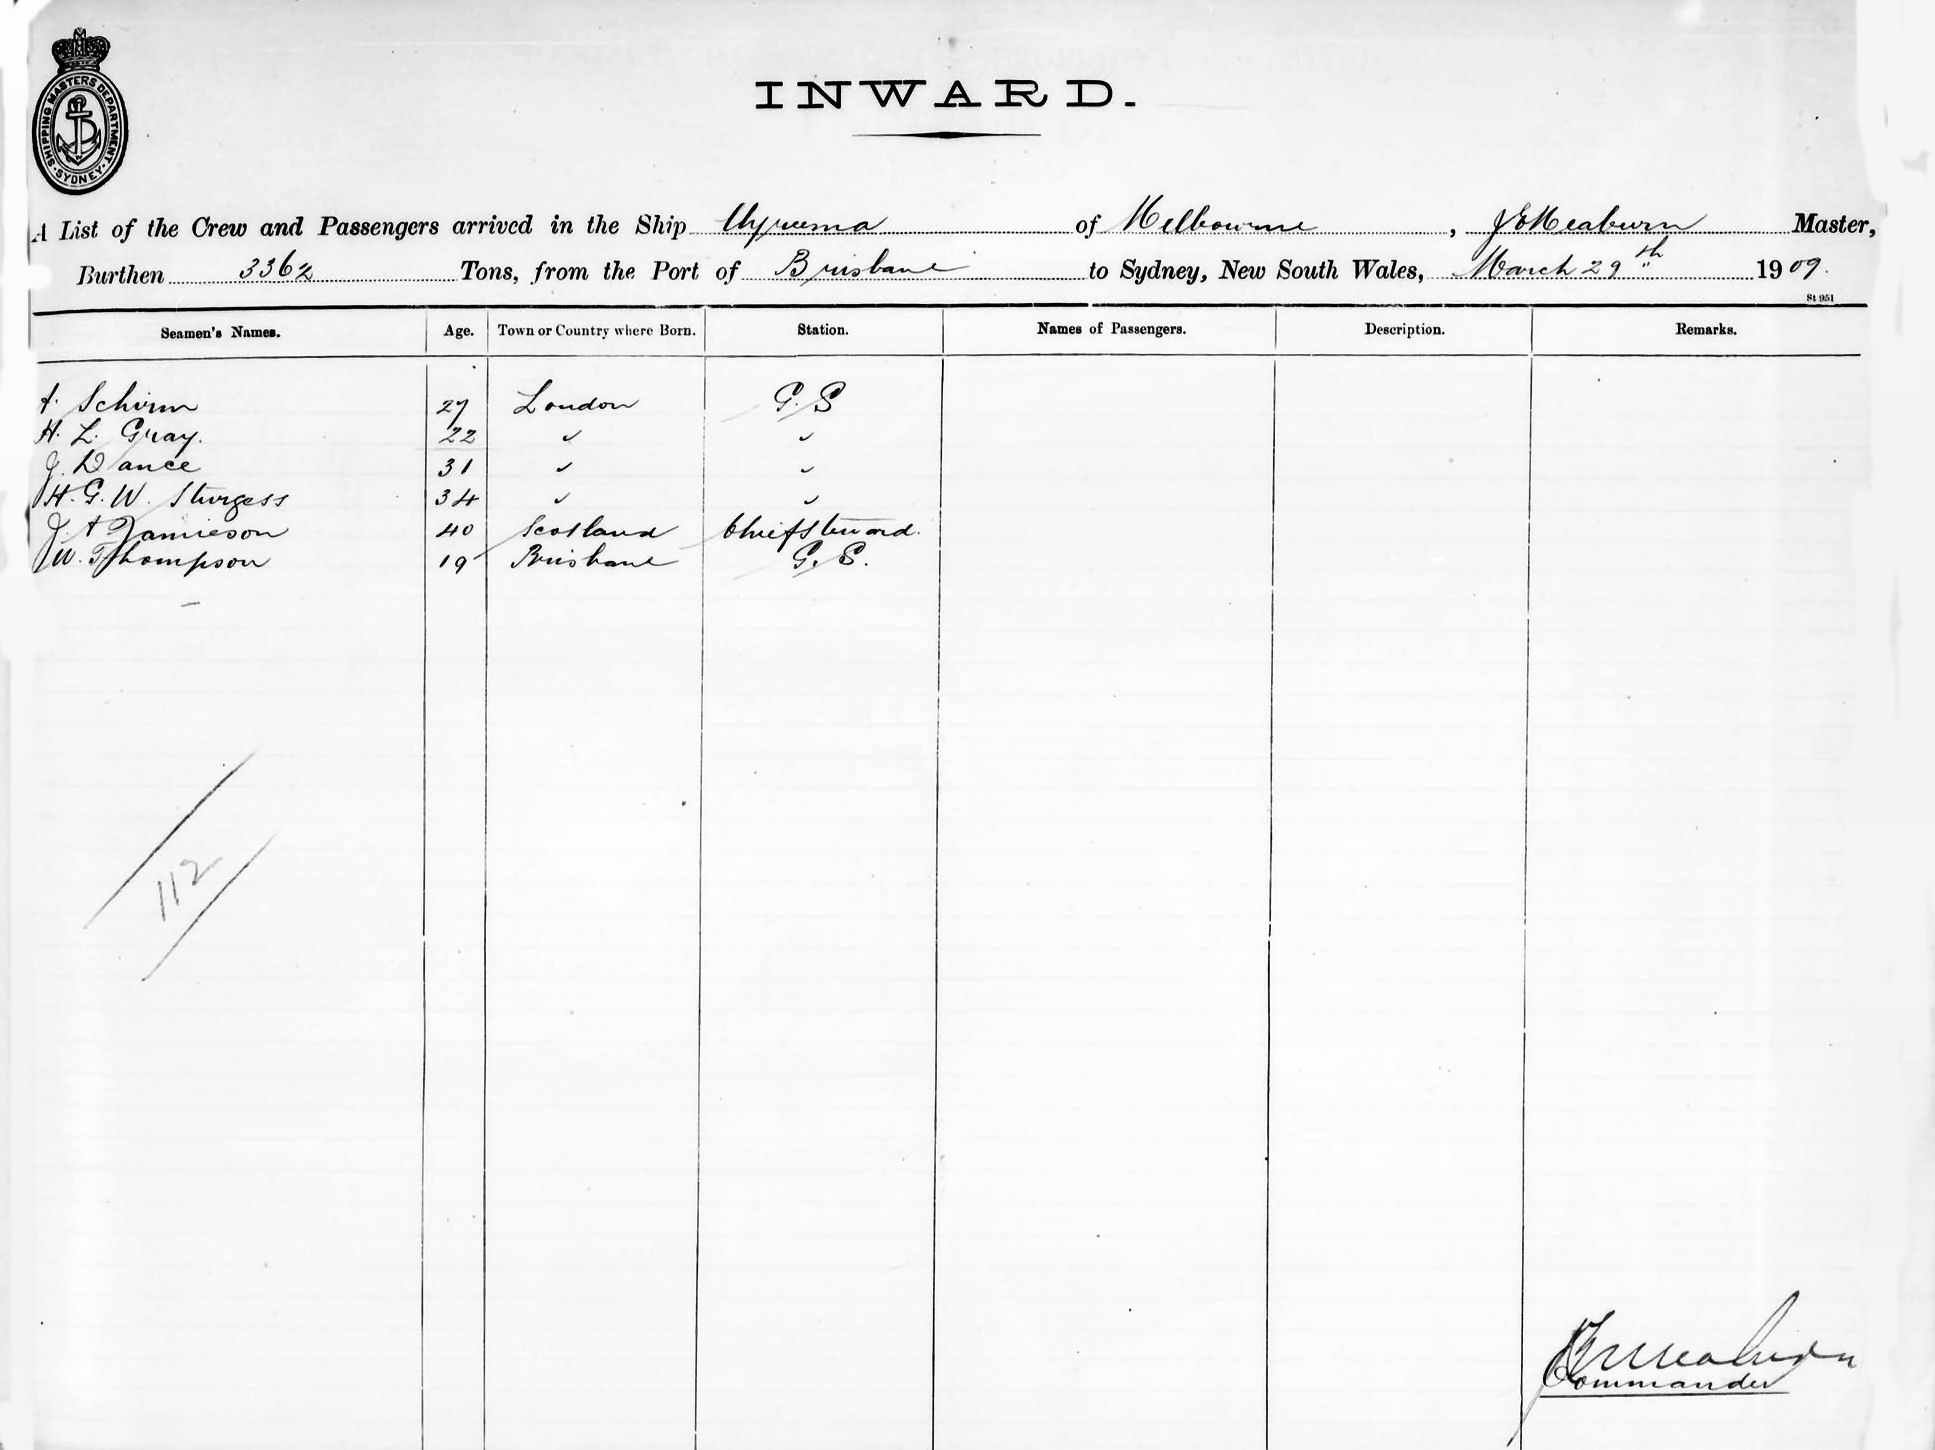 SHIPPING MASTERS DEPARTMENT · SYDNEY ·
INWARD.
A List of the Crew and Passengers arrived in the Ship Wyreema of Melbourne, J E Meaburn Master,
Burthen 3362 Tons, from the Port of Brisbane to Sydney, New South Wales, March 29th 1909.
St 951
Seamen's Names. Age. Town or Country where Born. Station. Names of Passengers. Description. Remarks.
A. Schirm 27 London G. S
H. L. Gray. 22 " "
J. Dance 31 " "
H. G. W. Sturgess 34 " "
J. A Jamieson 40 Scotland Chief Steward.
W. Thompson 19 Brisbane G. S.
112
Commander